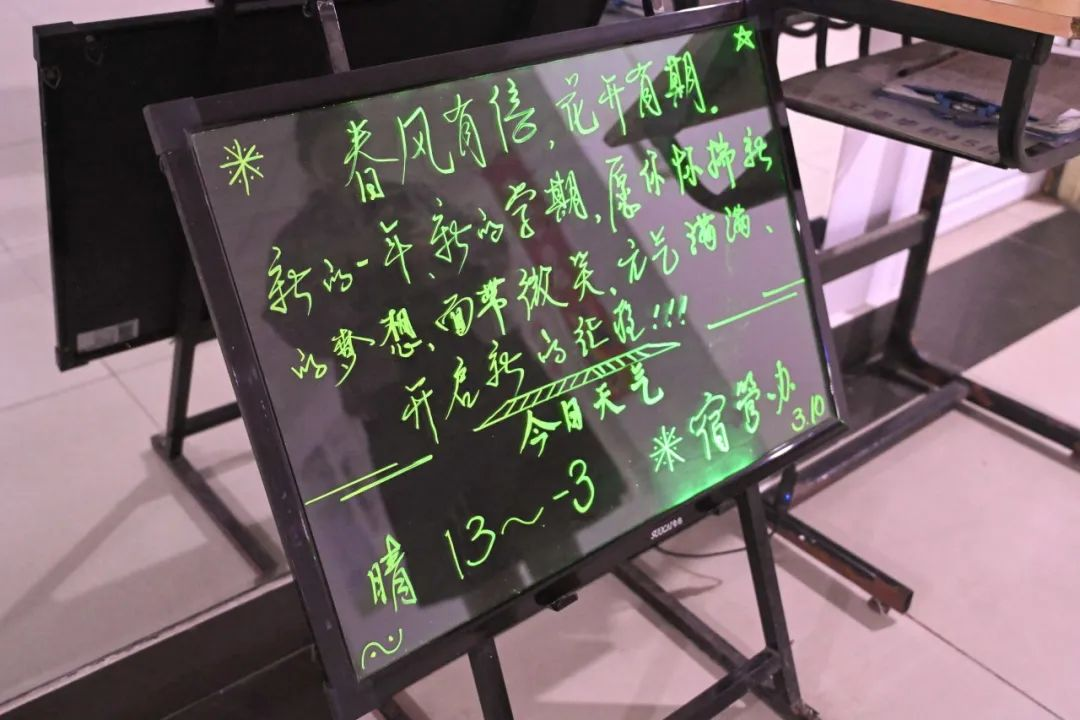 春风有信,花开有期.
新的一年、新的学期,愿你怀揣新
的梦想、面带微笑、元气满满、
开启新的征程!!!
今日天气
宿管办
3.10
晴 13~-3